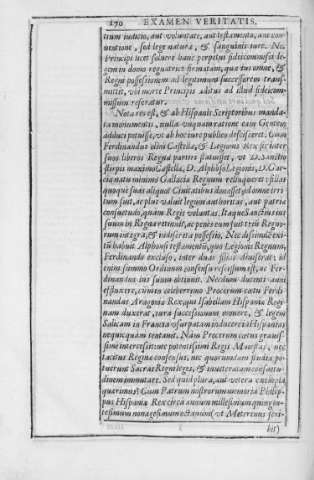 270 EXAMEN VERITATIS.
trium iudicio, aut voluntate, aut testamento, aut con-
uentione, sed lege naturæ, & sanguinis iure. Nec
Principi licet soluere hanc perpetui fideicommissi le-
gem in domo regnatrice firmatam, quæ suo more, &
Regni possessionem ad legitimum successorem trans-
mittit, vbi morte Principis aditus ad illud fideicom-
missum reseratur.
Nota res est, & ab Hispanis Scriptoribus manda-
ta monumentis, nulla vnquam ratione eam Gentem
adduci potuisse, vt ab hoc iure publico descisceret. Cum
Ferdinandus olim Castellæ, & Legionis Rex sic inter
suos liberos Regna partiri statuisset, vt D. Sancio
stirpis maximo Castella, D. Alphonso Legionis, D. Gar-
ciæ natu minimo Gallæcia Regnum relinqueret, filias
quoque suas aliquot Ciuitatibus donasset, id omne irri-
tum fuit, ac plus valuit legum authoritas, aut patria
consuetudo, quàm Regis voluntas. Itaque Sanctius ius
suum in Regna retinuit, ac penes eum fuit trium Regno-
rum integra, & indiserta possessio. Nec dissimilē exi-
tū habuit Alphonsi testamentū, quo Legionis Regnum,
Ferdinando excluso, inter duas filias diuiserat: id
enim summo Ordinum consensu rescissum est, ac Fer-
dinando ius suum obtinuit. Necdum ducenti anni
effluxere, cùm in celeberrimo Procerum cœtu Ferdi-
nandus Aragoniæ Rex, qui Isabellam Hispaniæ Regi-
nam duxerat, iura successionum mouere, & legem
Salicam in Francia vsurpatam inducere in Hispanias
nequicquam tentauit. Nam Procerum cœtus grauis-
simè intercessit; nec potentissimi Regis Maiestas, nec
tacitus Reginæ consensus, nec quorundam studia po-
tuerunt Sacras Regni leges, & inueteratam consuetu-
dinem immutare. Sed quid plura, aut vetera exempla
quærimus? Cum Patrum nostrorum memoria Philip-
pus Hispaniæ Rex circa annum millesimum quingen-
tesimum nonagesimum octauum (vt Meteranus scri-
bit)